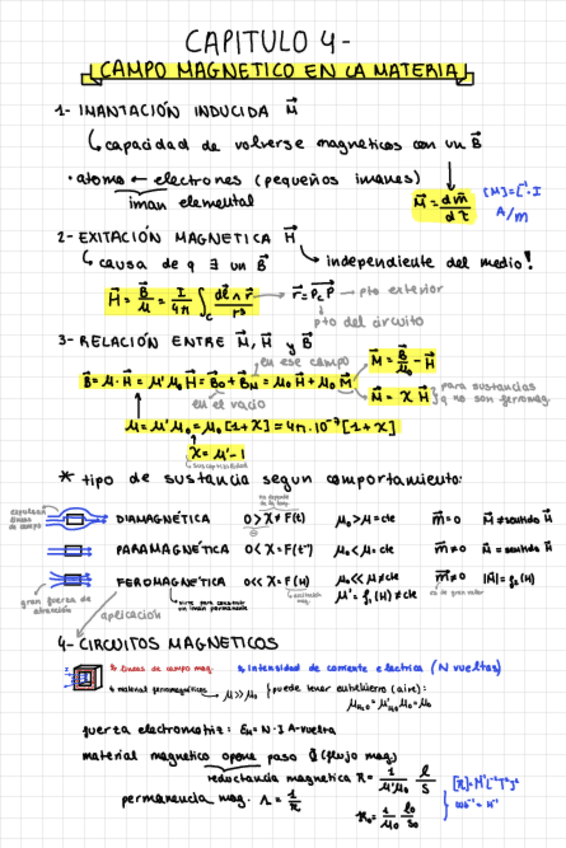 CAPITULO 4-
CAMPO MAGNETICO EN LA MATERIA
1- IMANTACIÓN INDUCIDA M⃗
capacidad de volverse magneticos con un B⃗
· atomo ← electrones (pequeños imanes)
iman elemental
M⃗ = dm⃗/dτ
[M]=L⁻¹·I
A/m
2- EXITACIÓN MAGNETICA H⃗
causa de q ∃ un B⃗
independiente del medio!
H⃗ = B⃗/μ = I/4π ∫c dl⃗ ∧ r⃗/r³
r⃗ = PcP → pto exterior
pto del circuito
3- RELACIÓN ENTRE M⃗, H⃗ y B⃗
en ese campo
M⃗ = B⃗/μ₀ - H⃗
B⃗ = μ·H⃗ = μ'μ₀H⃗ = B⃗₀ + B⃗M = μ₀H⃗ + μ₀M⃗
M⃗ = χH⃗
para sustancias
q no son ferromag.
en el vacio
μ = μ'μ₀ = μ₀[1+χ] = 4π·10⁻⁷[1+χ]
χ = μ'-1
susceptibilidad
* tipo de sustancia segun comportamiento:
expulsan
lineas
de campo
no depende
de la temp.
DIAMAGNÉTICA 0 > χ ≠ F(t) μ₀ > μ = cte m⃗ = 0 M⃗ ≠ sentido H⃗
PARAMAGNÉTICA 0 < χ = F(t⁻¹) μ₀ < μ = cte m⃗ ≠ 0 M⃗ = sentido H⃗
FEROMAGNETICA 0 << χ = F(H) μ₀ << μ ≠ cte m⃗ ≠ 0 |M| = f₂(H)
gran fuerza de
atracción
sirve para construir
un iman permanente
exitación
mag.
μ' = f₁(H) ≠ cte
es de gran valor
aplicación
4- CIRCUITOS MAGNETICOS
* lineas de campo mag.
* intensidad de corriente electrica (N vueltas)
* material ferromagnéticos → μ >> μ₀
puede tener entrehierro (aire):
fuerza electromotriz: = N·I A-vuelta
material magnetico opone paso Φ (flujo mag)
reductancia magnetica R = 1/μ'μ₀ l/S
permanencia mag. Λ = 1/R
R₀ = 1/μ₀ l₀/S₀
Wb⁻¹ = H⁻¹